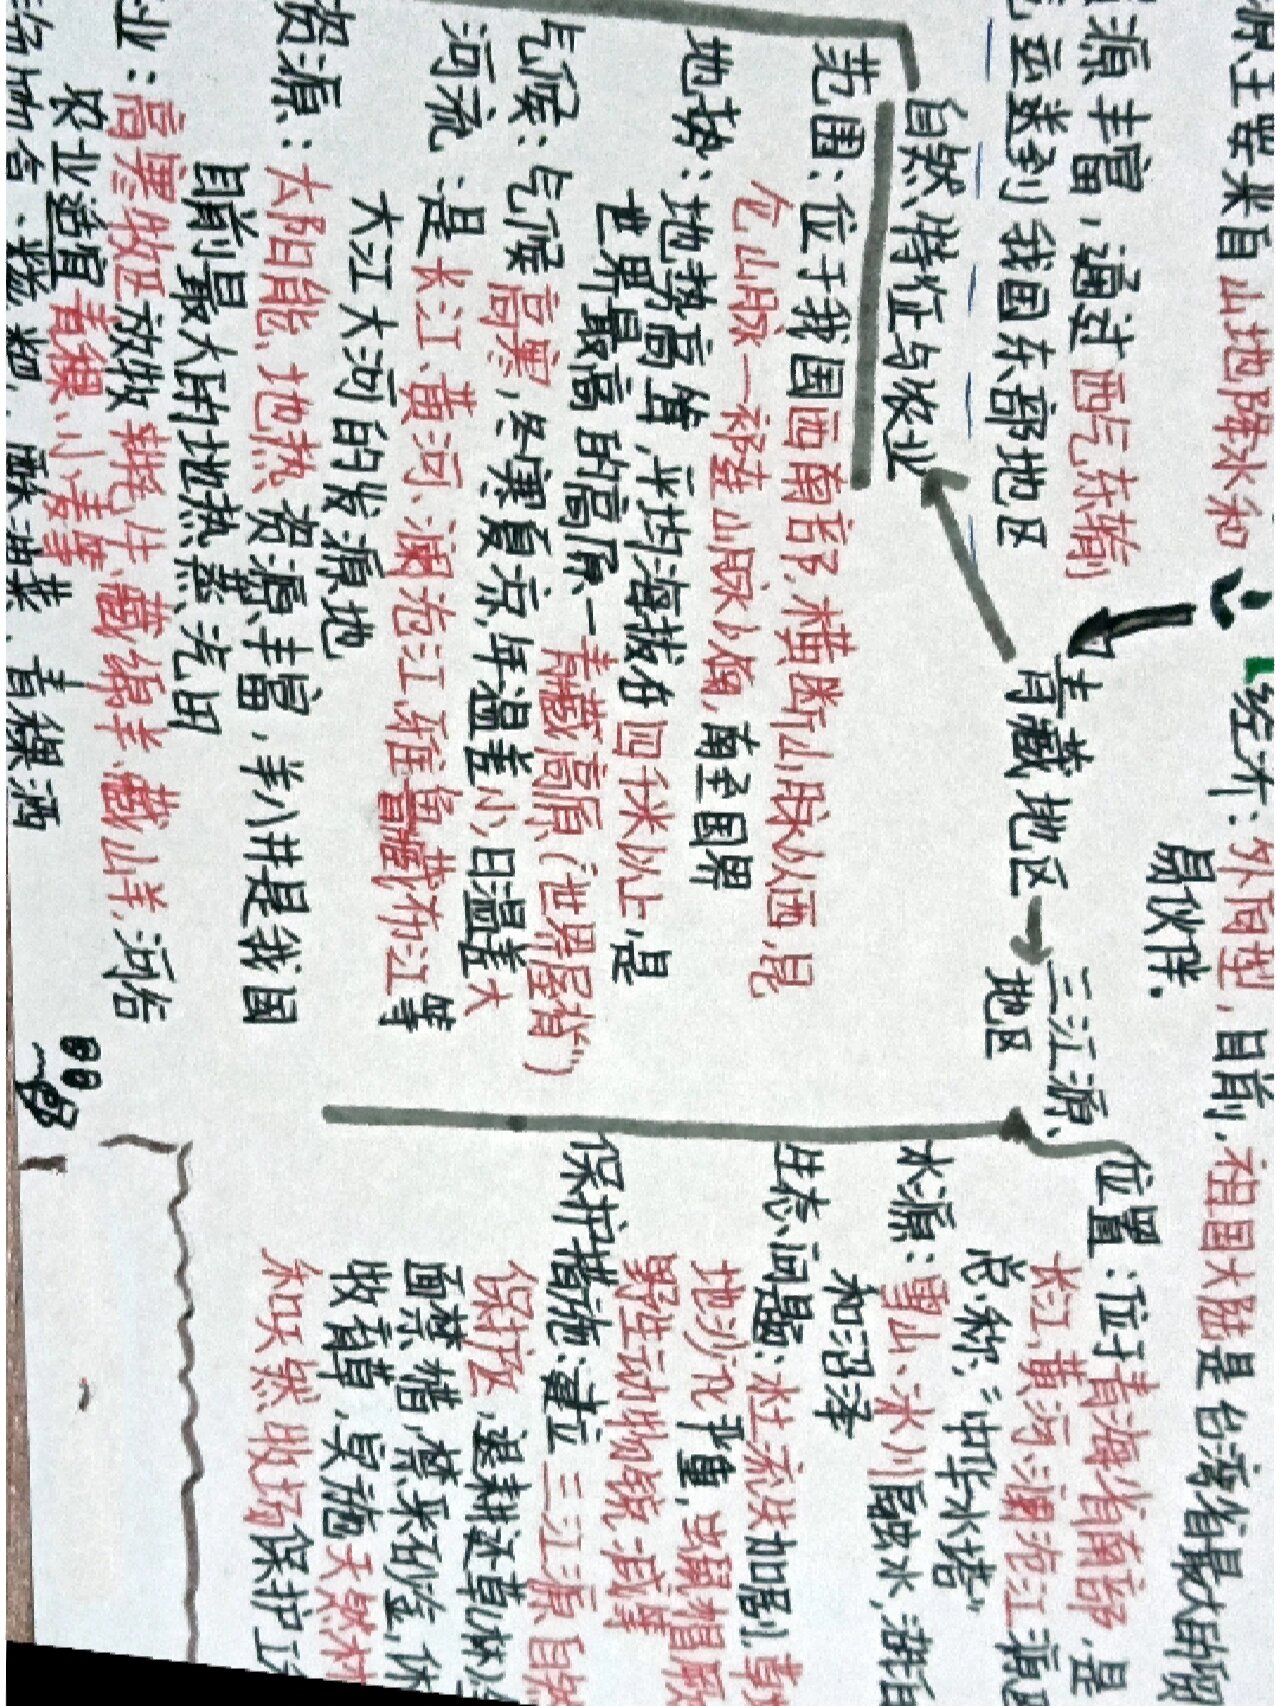 源主要来自山地降水和
源丰富，通过西气东输
运送到我国东部地区
经济：外向型，目前，祖国大陆是台湾省最大的贸
易伙伴.
青藏地区→三江源
地区
自然特征与农业
范围：位于我国西南部.横断山脉以西,昆
仑山脉一祁连山脉以南,南至国界
地势：地势高耸,平均海拔在四千米以上,是
世界最高的高原一青藏高原(“世界屋脊”)
气候：气候高寒,冬寒夏凉,年温差小日温差大
河流：是长江、黄河、澜沧江、雅鲁藏布江等
大江大河的发源地
资源：太阳能、地热资源丰富，羊八井是我国
目前最大的地热蒸汽田
业：高寒牧区放牧牦牛、藏绵羊、藏山羊,河谷
农业适宜青稞、小麦等
糌粑、酥油茶、青稞酒
位置：位于青海省南部,是
长江、黄河、澜沧江源
总称:“中华水塔”
水源：雪山、冰川融水,湖泊
和沼泽
生态问题：水土流失加剧,草
地沙化严重,
野生动物锐减等
保护措施:建立三江源自然
保护区,退耕还草
面禁猎,禁采砂金,休
牧育草,实施天然林
和天然牧场保护工